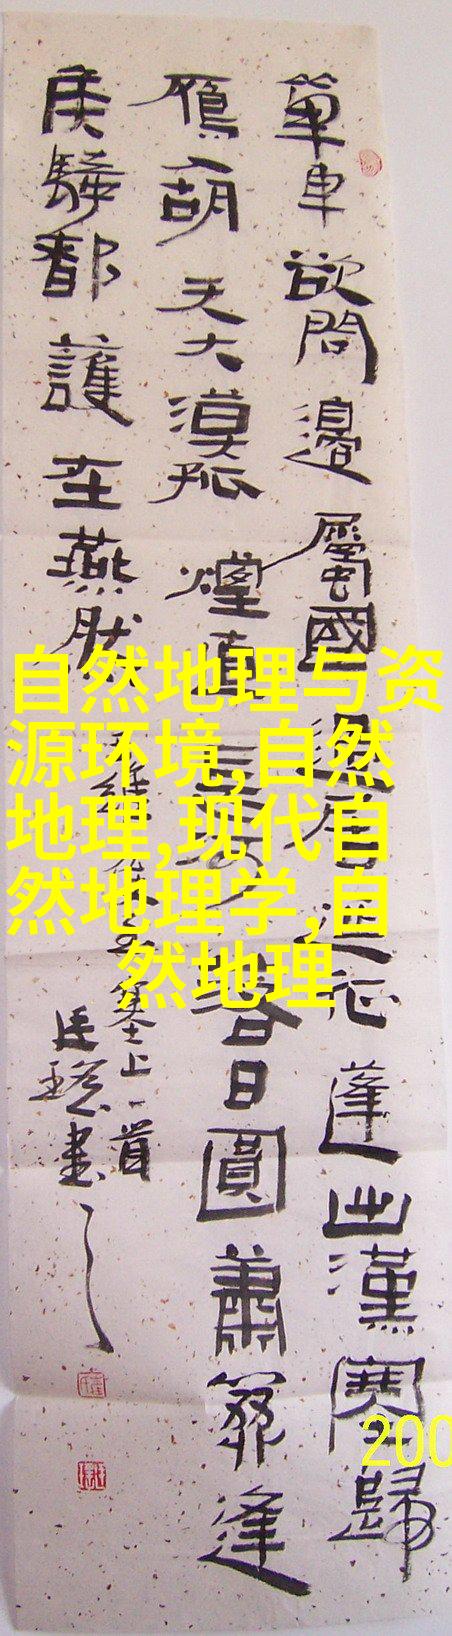 單車欲問邊屬國過居延征蓬出漢塞歸
鴈入胡天大漠孤煙直長河落日圓蕭關逢
候騎都護在燕然
王維使至塞上一首
書
自然地理与资
源环境,自然
地理,现代自
然地理学,自
然地理
200